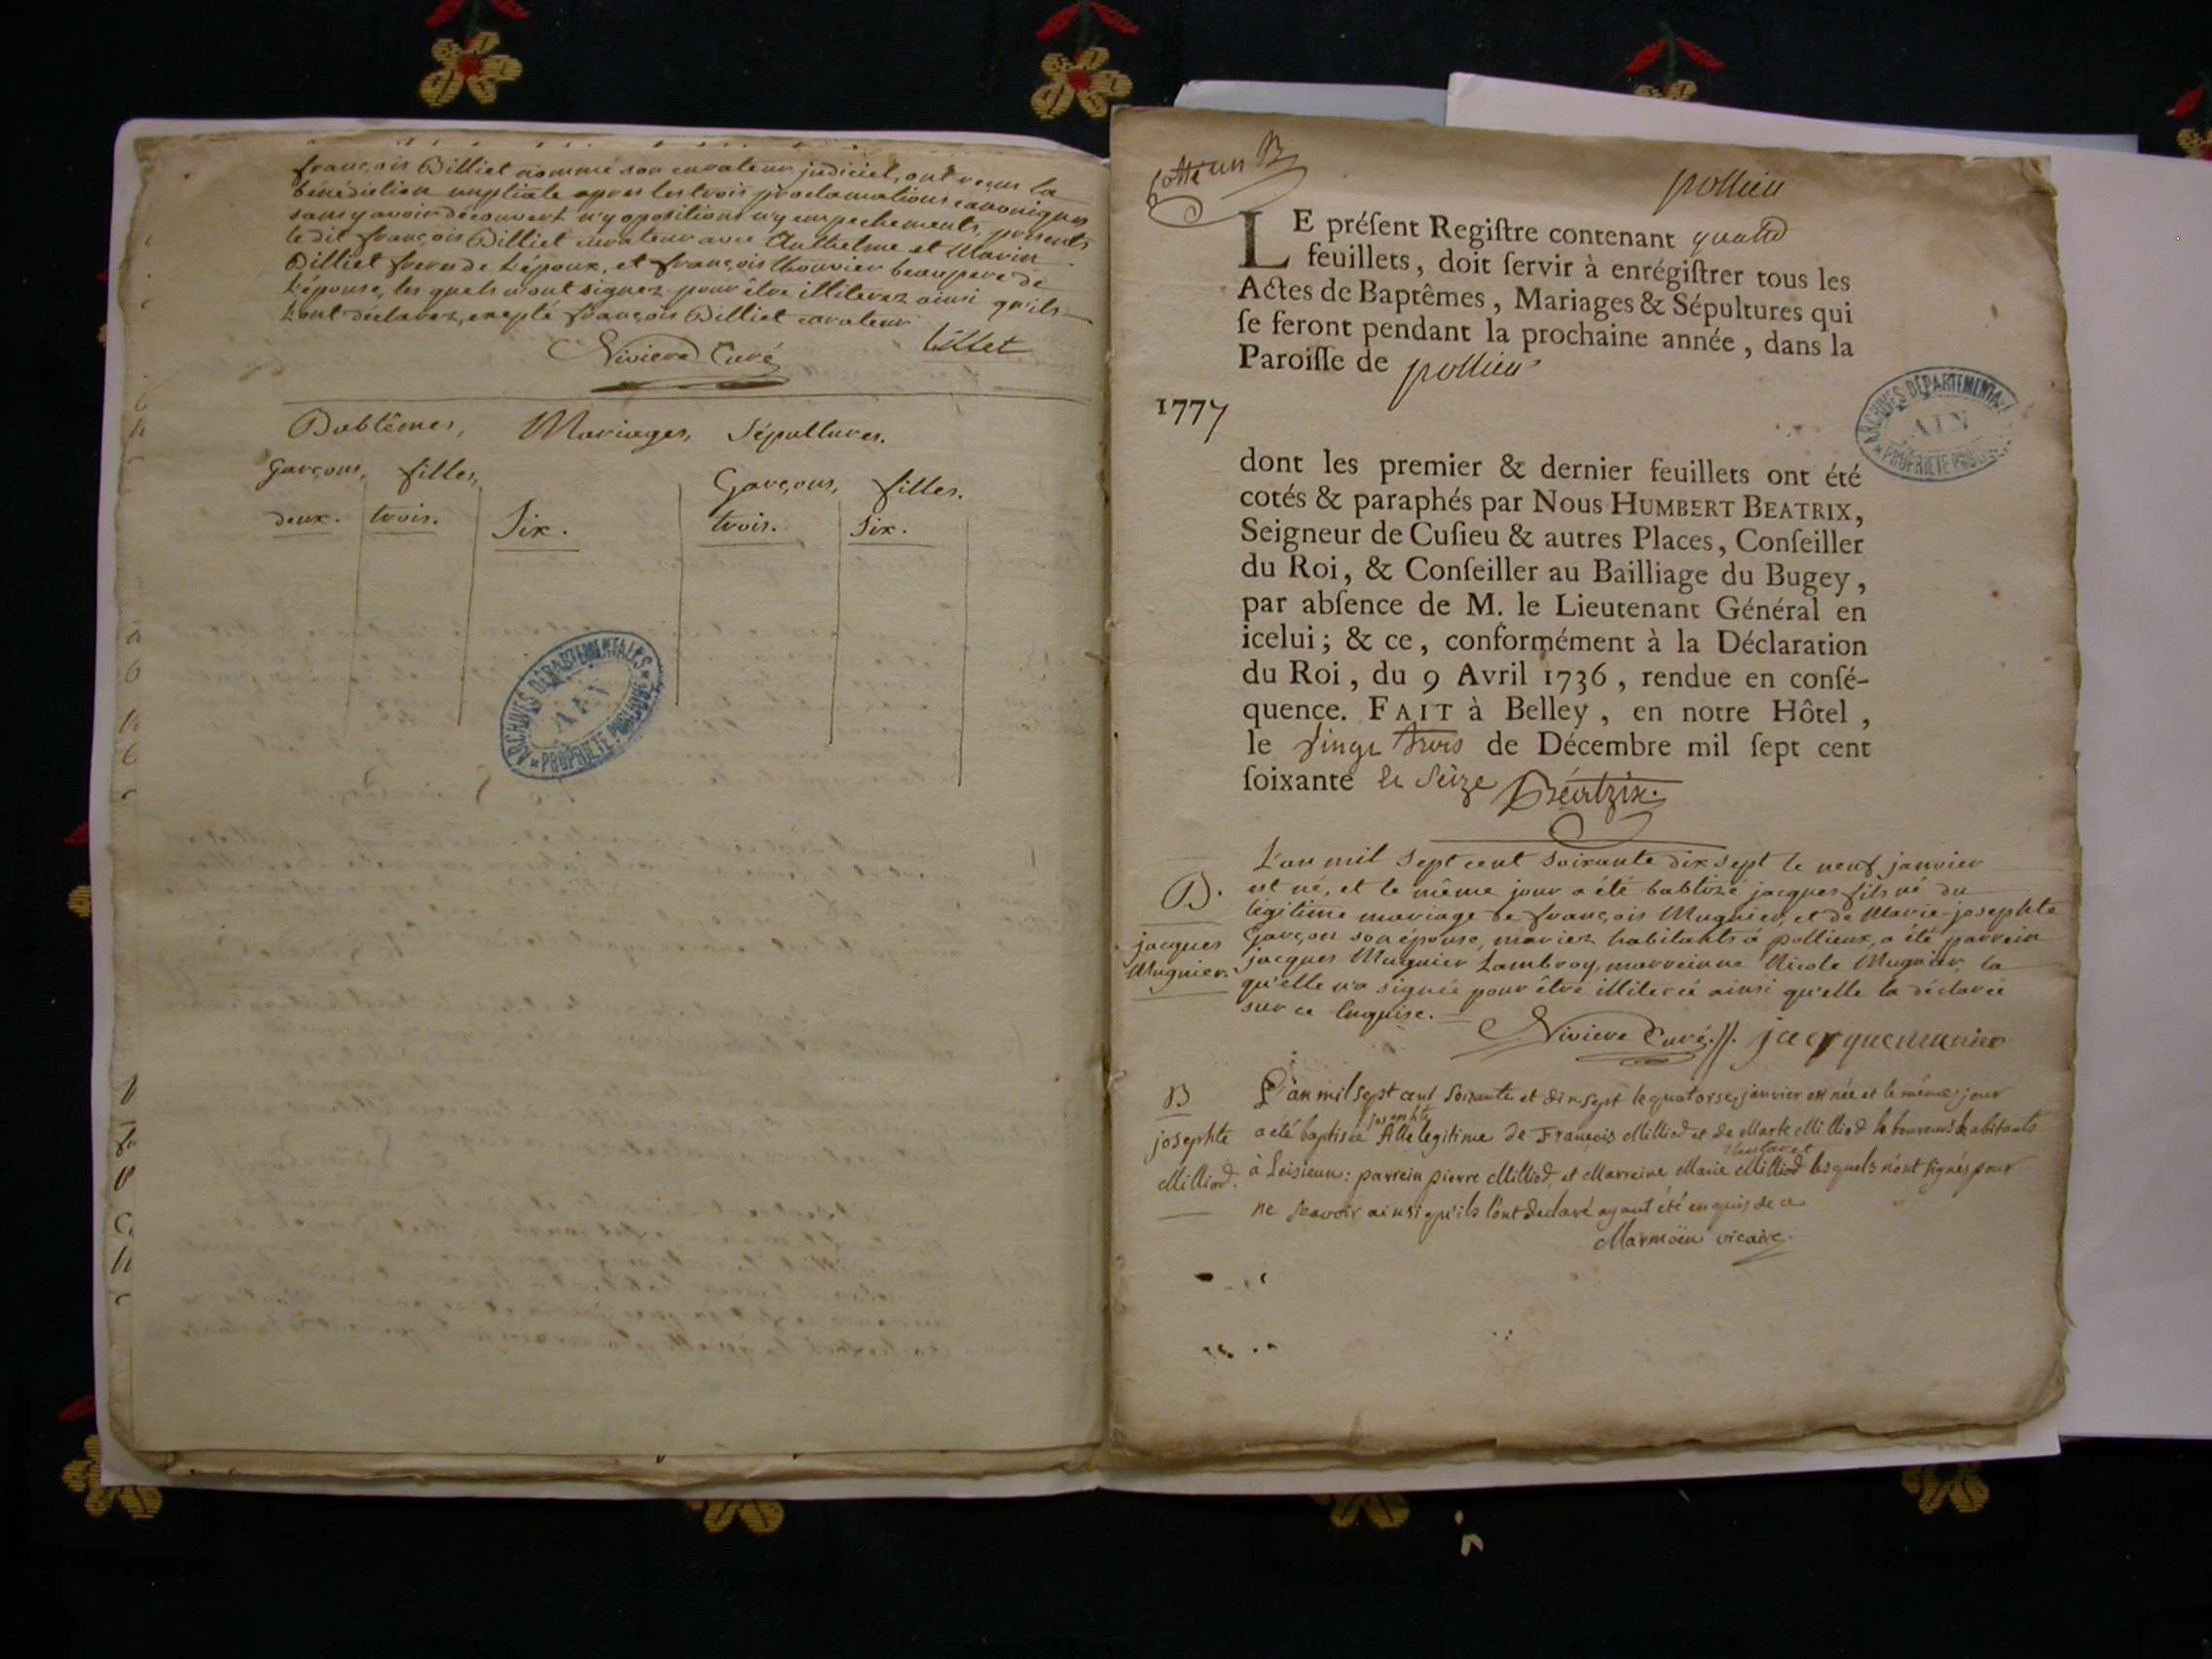 françois Billiet nommé son curateur judiciel, ont reçus la
bénédiction nuptiale apres les trois proclamations canoniques
sans y avoir découvert n'y opositions n'y empechements, présents
le dit françois Billiet curateur avec Anthelme et Marin
Billiet freres de L'époux, et françois Thouvier beaupere de
L'épouse, les quels n'ont signez pour être illiterez ainsi qu'ils
l'ont déclarez, excepté françois Billiet curateur
billiet
Niviere Curé
Babtêmes, Mariages, Sépultures.
Garçons, filles, Garçons, filles.
deux. trois. Six. trois. Six.
ARCHIVES DÉPARTEMENTALES
AIN
* PROPRIÉTÉ PUBLIQUE *
Cotté un B
pollieu
LE préſent Regiſtre contenant
feuillets, doit ſervir à enrégiſtrer tous les
Actes de Baptêmes, Mariages & Sépultures qui
ſe feront pendant la prochaine année, dans la
Paroiſſe de pollieu
1777
ARCHIVES DÉPARTEMENTALES
AIN
* PROPRIÉTÉ PUBLIQUE
dont les premier & dernier feuillets ont été
cotés & paraphés par Nous HUMBERT BEATRIX,
Seigneur de Cuſieu & autres Places, Conſeiller
du Roi, & Conſeiller au Bailliage du Bugey,
par abſence de M. le Lieutenant Général en
icelui; & ce, conformément à la Déclaration
du Roi, du 9 Avril 1736, rendue en conſé-
quence. FAIT à Belley, en notre Hôtel,
le vingt trois de Décembre mil ſept cent
ſoixante et Seize Béatrix.
L'an mil Sept cent Soixante dix sept le neuf janvier
B. est né, et le même jour a été babtizé jacques fils né du
légitime mariage de françois Mugnier, et de Marie-josephte
jacques Garçon son épouse, mariez habitants à pollieux, a été parrein
Mugnier. jacques Mugnier Lambroy, marreinne Nicole Mugnier la
qu'elle n'a signée pour être illiterée ainsi qu'elle la déclarée
sur ce Enquise.
Niviere Curé.//. jacque munier
B L'an mil sept cent soixante et dix sept le quatorse janvier est née et le même jour
josephte
josephte a été baptisée fille legitime de François Milliod et de Marie Milliod laboureurs habitants
Milliod. à Leisieux: parrein pierre Milliod, et Marreine Marie Milliod lesquels n'ont signés pour
ne scavoir ainsi qu'ils l'ont declaré ayant été enquis de ce
Marmöen vicaire.